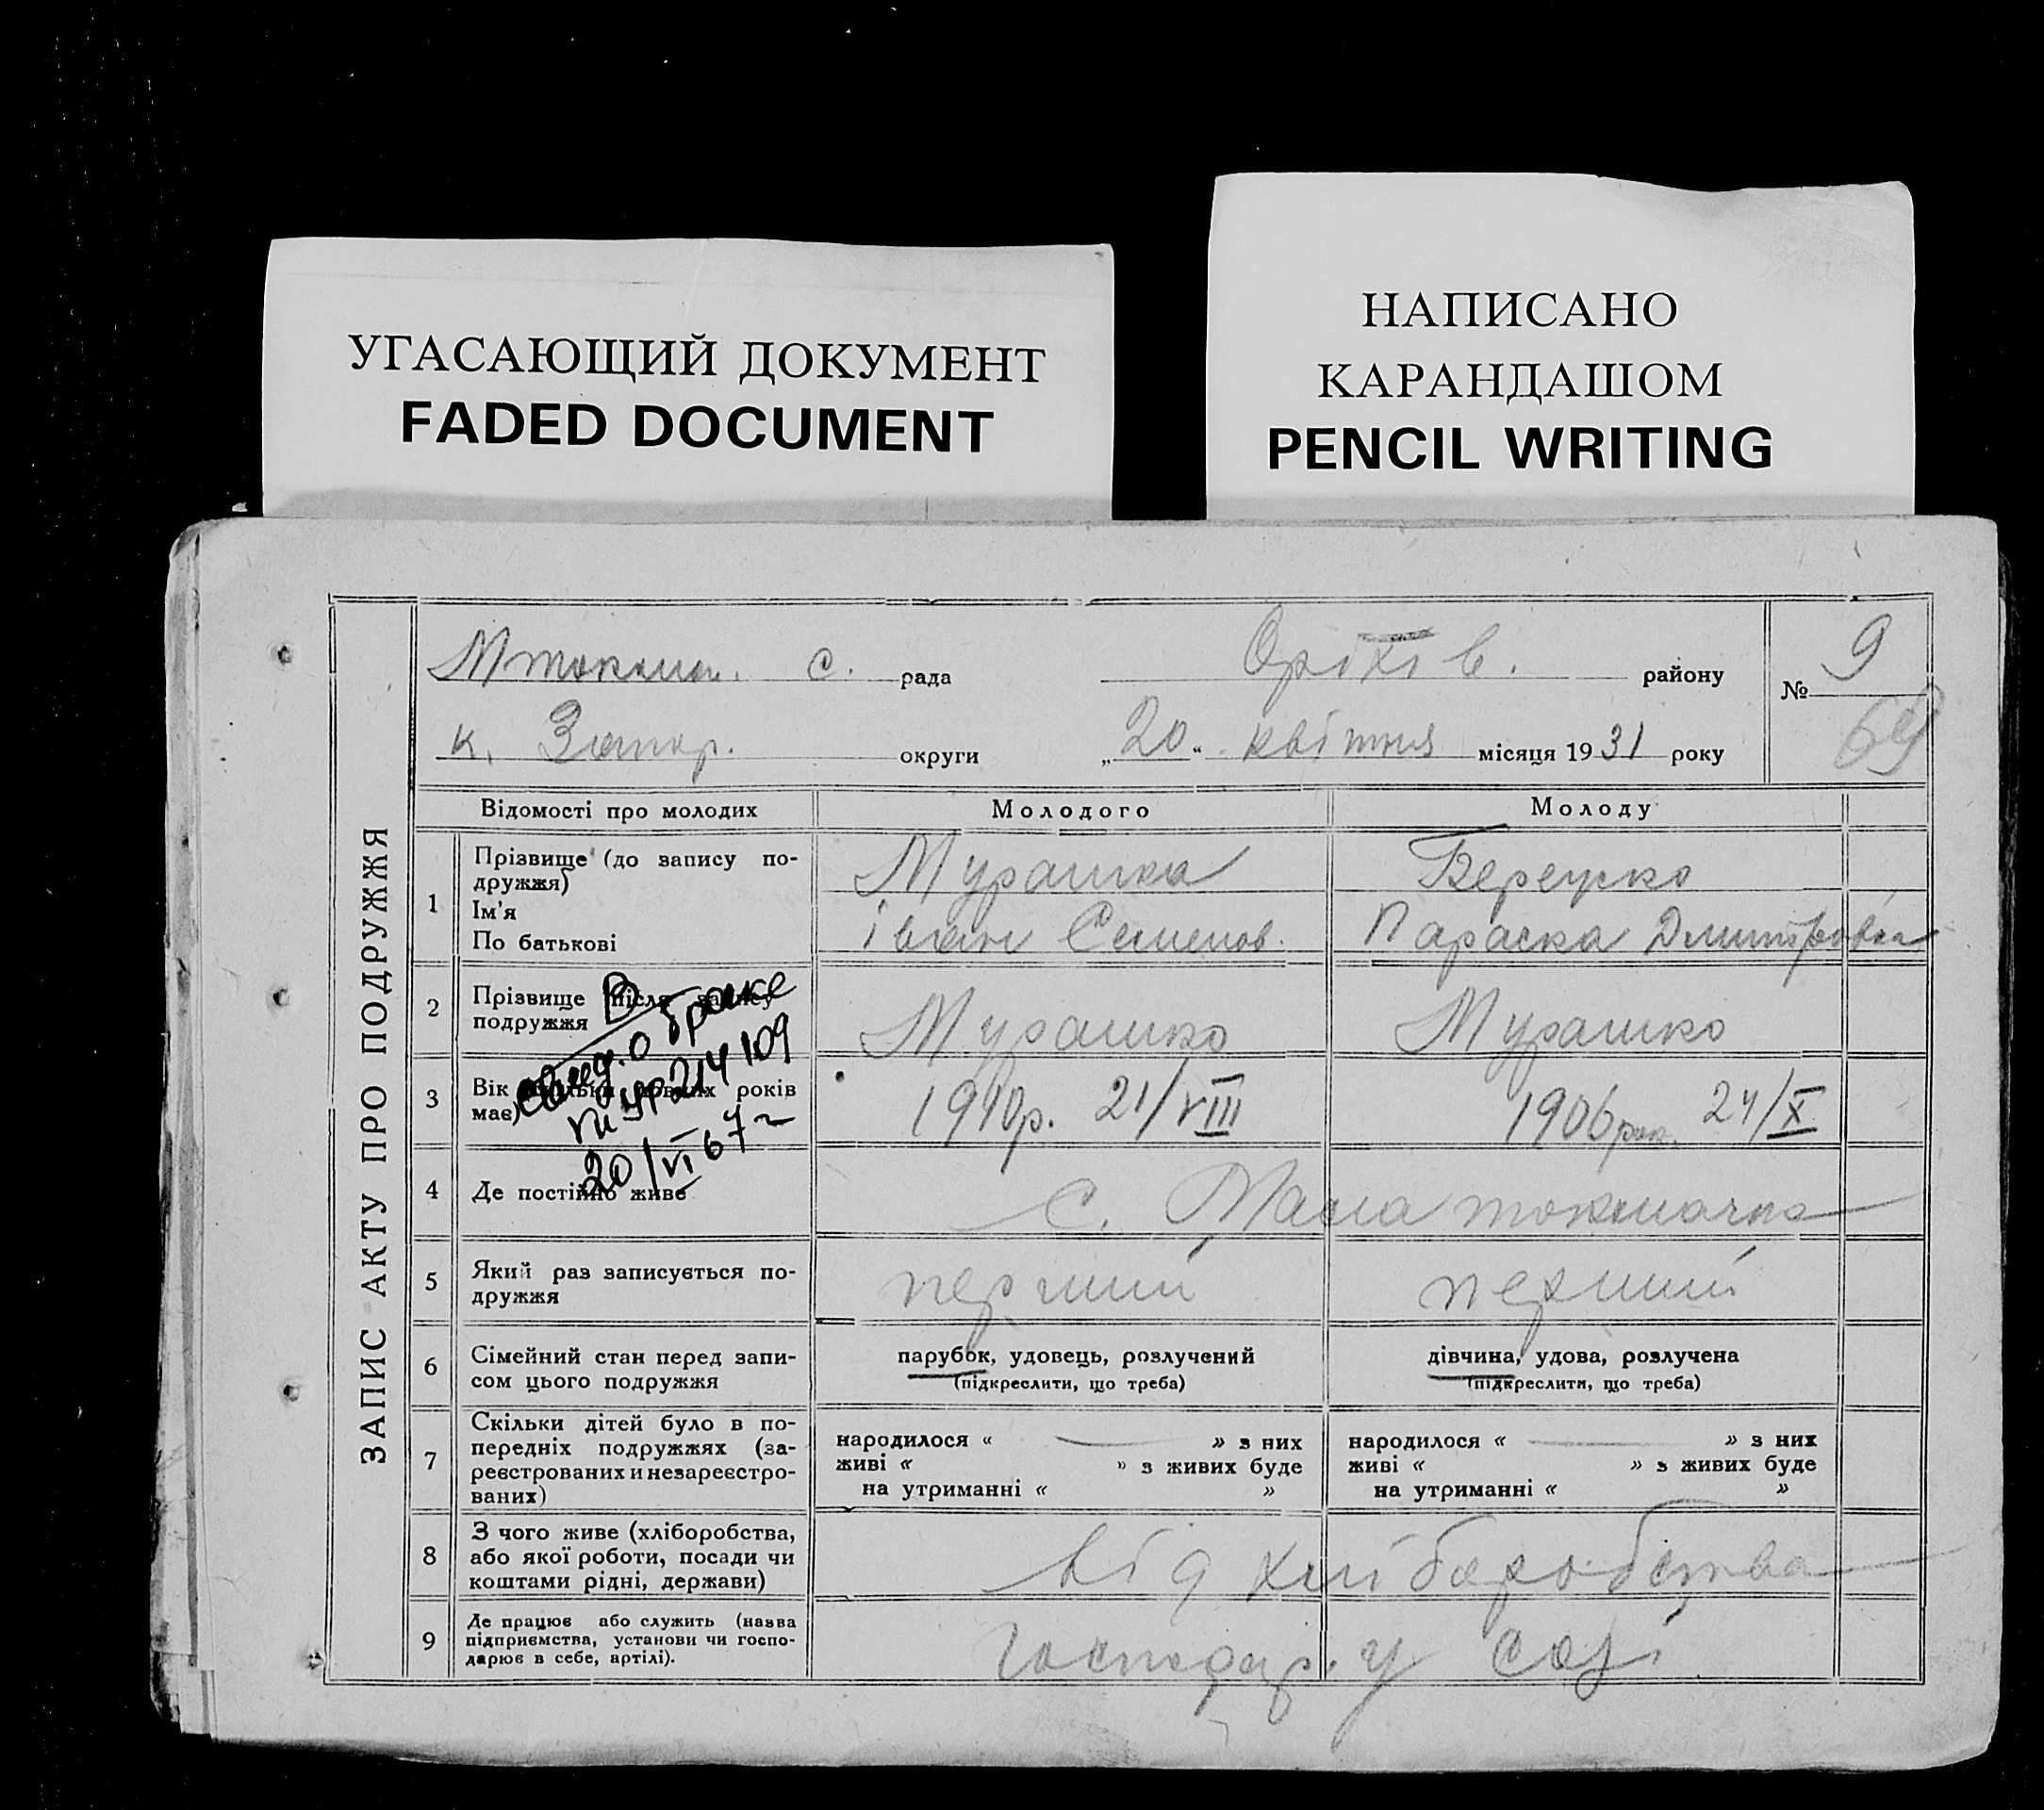 УГАСАЮЩИЙ ДОКУМЕНТ
FADED DOCUMENT
НАПИСАНО
КАРАНДАШОМ
PENCIL WRITING
ЗАПИС АКТУ ПРО ПОДРУЖЖЯ
Мтокмач. с. рада Оріхів. району № 9
69
к. Запор. округи „20“ квітня місяця 1931 року
Відомості про молодих Молодого Молоду
1 Прізвище (до запису подружжя) Мурашка
Ім'я
По батькові Іван Семенов. Параска Дмитрівна
2 Прізвище після запису подружжя Мурашко Мурашко
3 Вік (скільки повних років має) 1910р. 21/VIII 1906рок. 24/X
В
свид. о браке
214109
20/VI 67 г
4 Де постійно живе с. Мала токмачка
5 Який раз записується по-
дружжя перший перший
6 Сімейний стан перед запи-
сом цього подружжя парубок, удовець, розлучений дівчина, удова, розлучена
(підкреслити, що треба) (підкреслити, що треба)
7 Скільки дітей було в по-
передніх подружжях (за-
реєстрованих и незареєстро-
ваних)
народилося « » з них народилося « » з них
живі « » з живих буде живі « » з живих буде
на утриманні « » на утриманні « »
8 З чого живе (хліборобства,
або якої роботи, посади чи
коштами рідні, держави) від хліборобства
9 Де працює або служить (назва
підприємства, установи чи госпо-
дарює в себе, артілі). господар. у